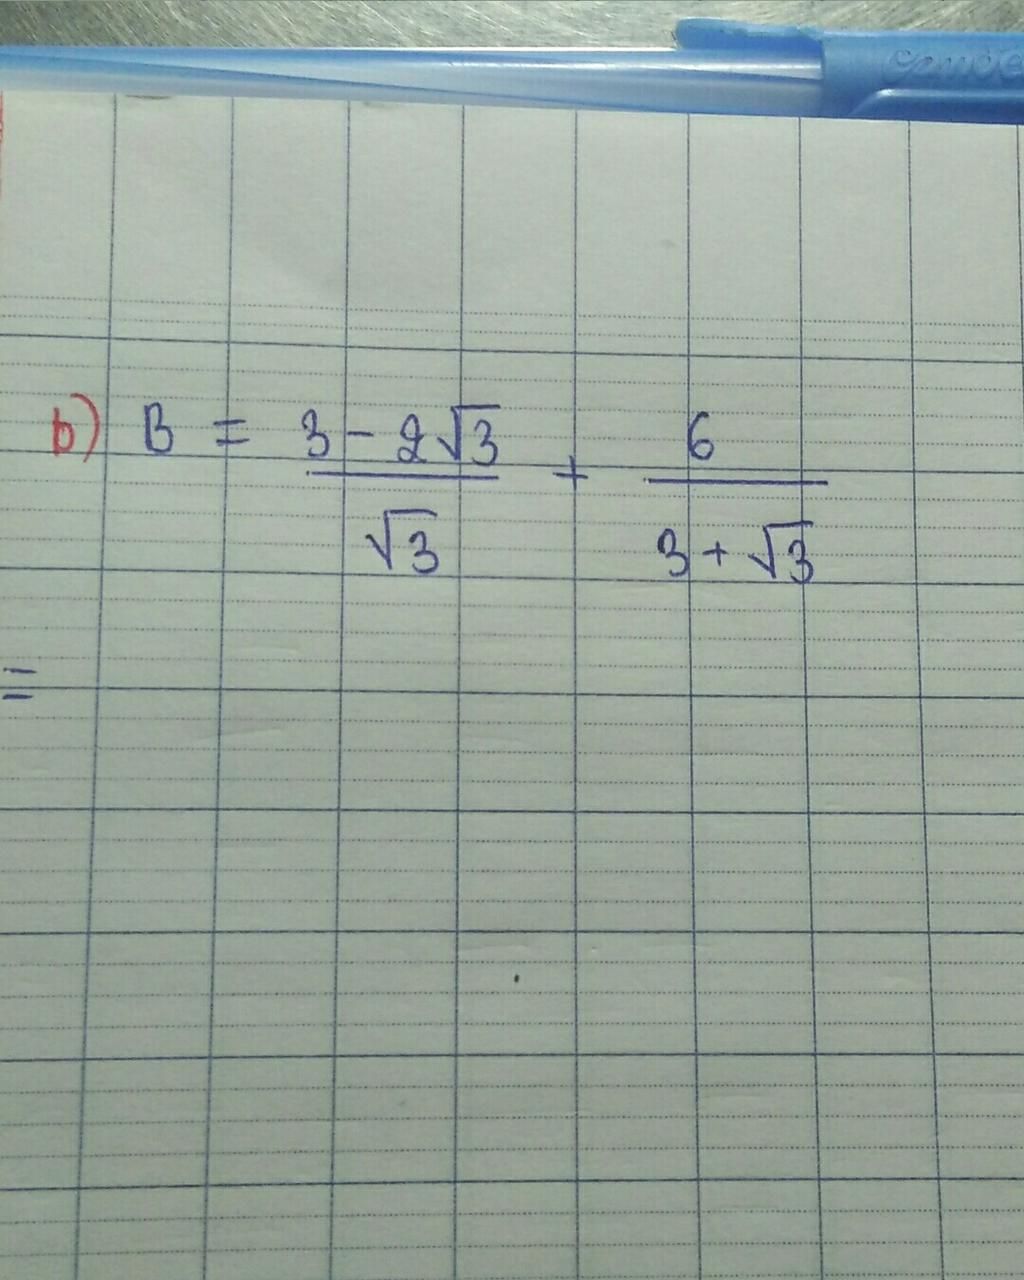 b) B = \frac{3 - 2\sqrt{3}}{\sqrt{3}} + \frac{6}{3 + \sqrt{3}}
=